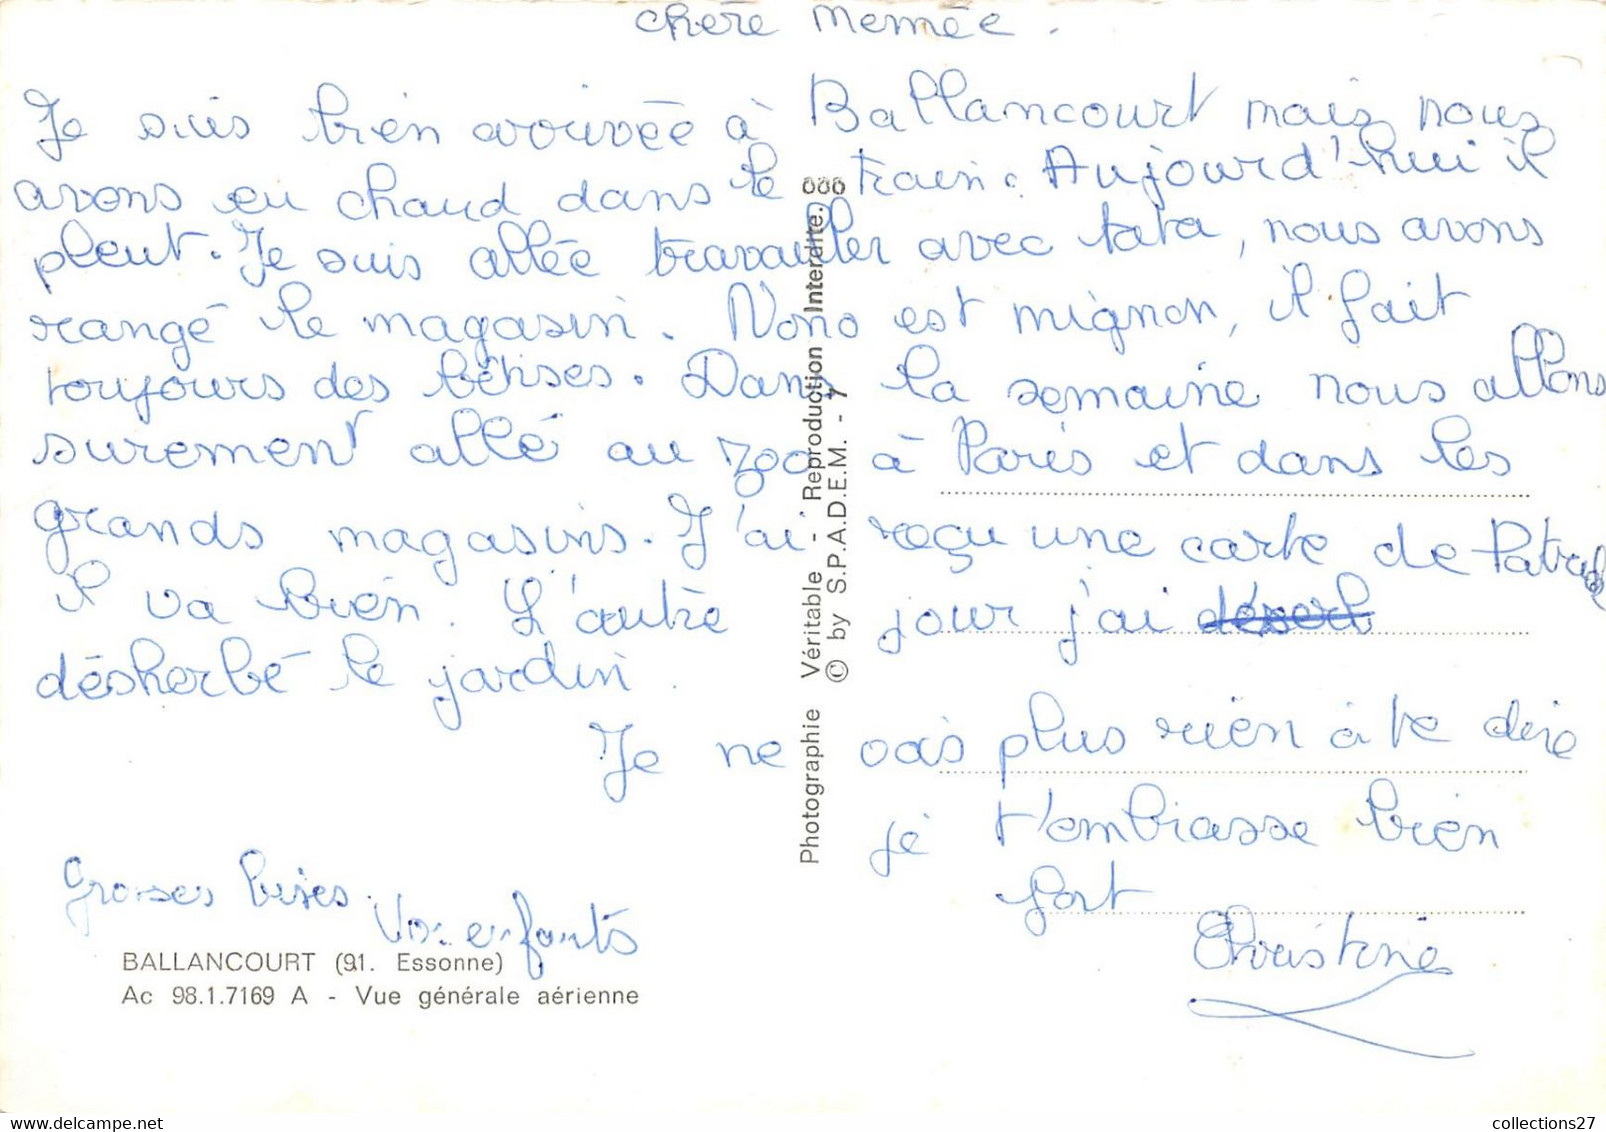 chère Memée.
Je suis bien arrivée à Ballancourt mais nous
avons eu chaud dans le train. Aujourd'hui il
pleut. Je suis allée travailler avec tata, nous avons
rangé le magasin. Nono est mignon, il fait
toujours des bétises. Dans la semaine nous allons
surement allé au zoo à Paris et dans les
grands magasins. J'ai reçu une carte de
il va bien. L'autre jour j'ai déserb
désherbé le jardin.
Je ne vois plus rien à te dire
je t'embrasse bien
fort
Christine
Grosses bises.
Vos enfants
BALLANCOURT (91. Essonne)
Ac 98.1.7169 A - Vue générale aérienne
Photographie Véritable - Reproduction Interdite.
© by S.P.A.D.E.M. - 7
collections27